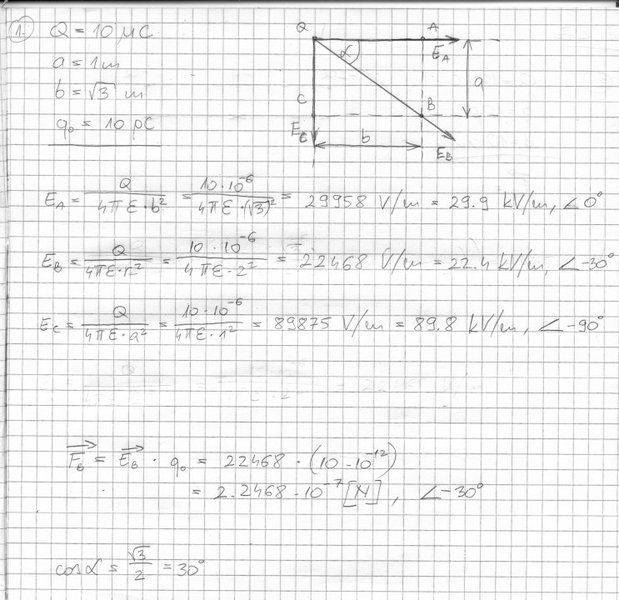 1. Q = 10 μC
a = 1m
b = √3 m
q₀ = 10 pC
Q A
α E_A
a
C B
E_C b E_B
E_A = Q / 4πε·b² = 10·10⁻⁶ / 4πε·(√3)² = 29958 V/m = 29.9 kV/m, ∠0°
E_B = Q / 4πε·r² = 10·10⁻⁶ / 4πε·2² = 22468 V/m = 22.4 kV/m, ∠-30°
E_C = Q / 4πε·a² = 10·10⁻⁶ / 4πε·1² = 89875 V/m = 89.8 kV/m, ∠-90°
F_B = E_B · q₀ = 22468 · (10·10⁻¹²)
= 2.2468·10⁻⁷ [N], ∠-30°
cos α = √3 / 2 = 30°